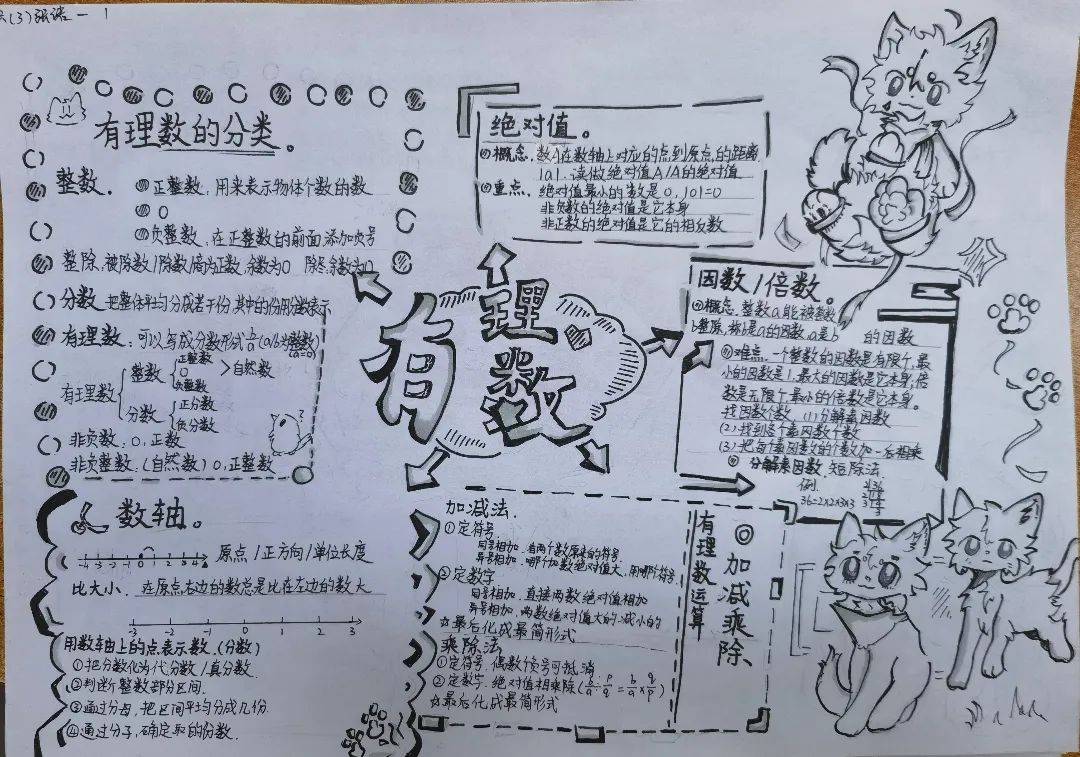 (3)
1
有理数的分类。
整数.
正整数,用来表示物体个数的数
0
负整数,在正整数的前面添加负号
整除,被除数/除数/商为正数,余数为0
分数.把整体平均分成若干份,其中的份用分数表示
有理数:可以写成分数形式
有理数
整数
正整数
0
负整数
>自然数
分数
正分数
负分数
非负数:0,正数
非负整数:(自然数)0,正整数
有理数
绝对值。
概念.数A在数轴上对应的点到原点的距离.
|a|.读做绝对值A/A的绝对值
重点、绝对值最小的数是0,|0|=0
非负数的绝对值是它本身
非正数的绝对值是它的相反数
因数/倍数。
概念.整数a能被整数
b整除,称b是a的因数,a是b
的因数
难点.一个整数的因数是有限个,最
小的因数是1,最大的因数是它本身;倍
数是无限个,最小的倍数是它本身。
找因数个数.(1)分解素因数
(2)找到各个素因数个数
(3)把每个素因数的个数加一后相乘
分解素因数.短除法.
例.
36=2×2×3×3
数轴。
-4 -3 -2 -1 0 1 2 3 4
原点/正方向/单位长度
比大小.在原点右边的数总是比在左边的数大
-3 -2 -1 0 1 2 3
用数轴上的点表示数.(分数)
①把分数化为代分数/真分数.
②判断整数部分区间.
③通过分母,把区间平均分成几份.
④通过分子,确定取的份数.
加减法.
①定符号.
同号相加,有两个数原来的符号
异号相加,哪个加数绝对值大,用哪个符号
②定数字
同号相加,直接两数绝对值相加
异号相加,两数绝对值大的减小的
☆最后化成最简形式
乘除法
①定符号,偶数个负号可抵消
②定数字.绝对值相乘除
☆最后化成最简形式
有理数运算
◎加减乘除、